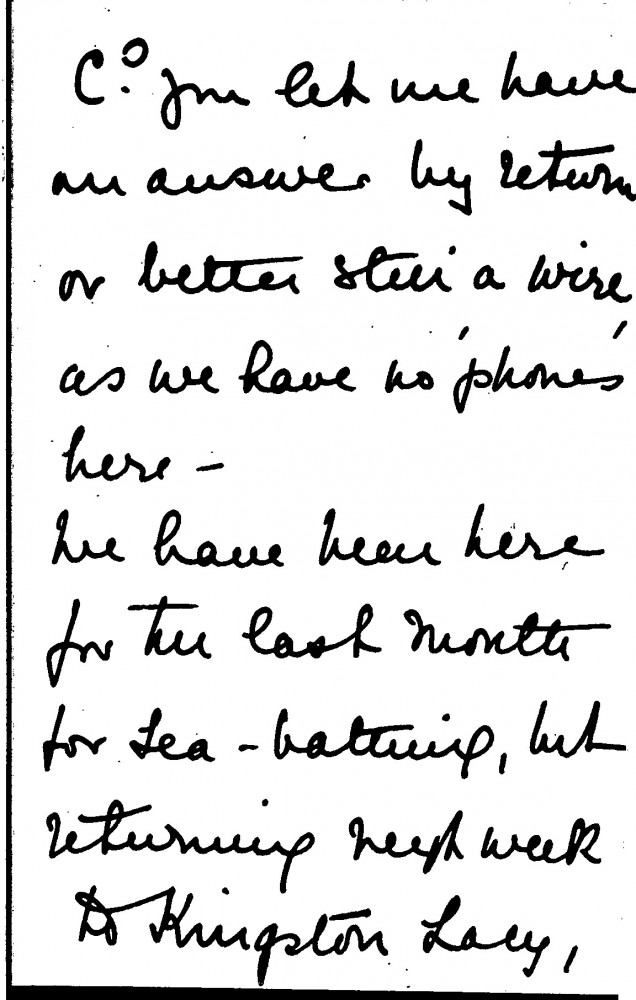 Cº you let me have
an answer by return
or better still a wire
as we have no 'phones'
here –
We have been here
for the last month
for sea-bathing, but
returning next week
to Kingston Lacy,